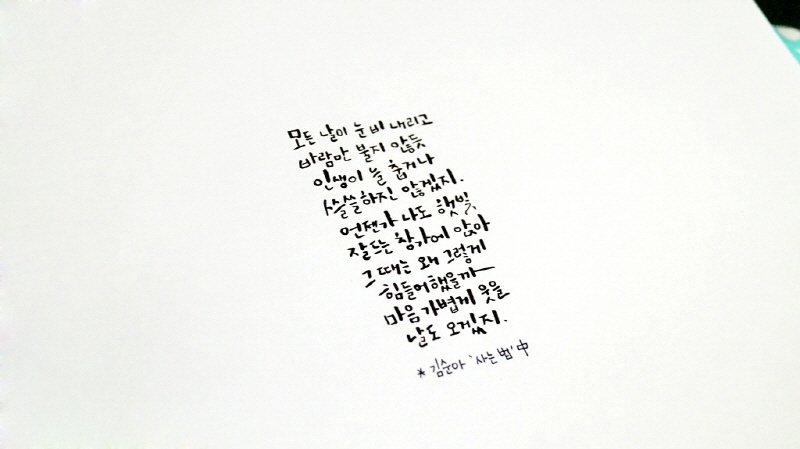 모든 날이 눈비 내리고
바람만 불지 않듯
인생이 늘 춥거나
쓸쓸하진 않겠지.
언젠가 나도 햇빛
잘 드는 창가에 앉아
그때는 왜 그렇게
힘들어했을까—
마음 가볍게 웃을
날도 오겠지.
* 김순아 '사는 법' 中